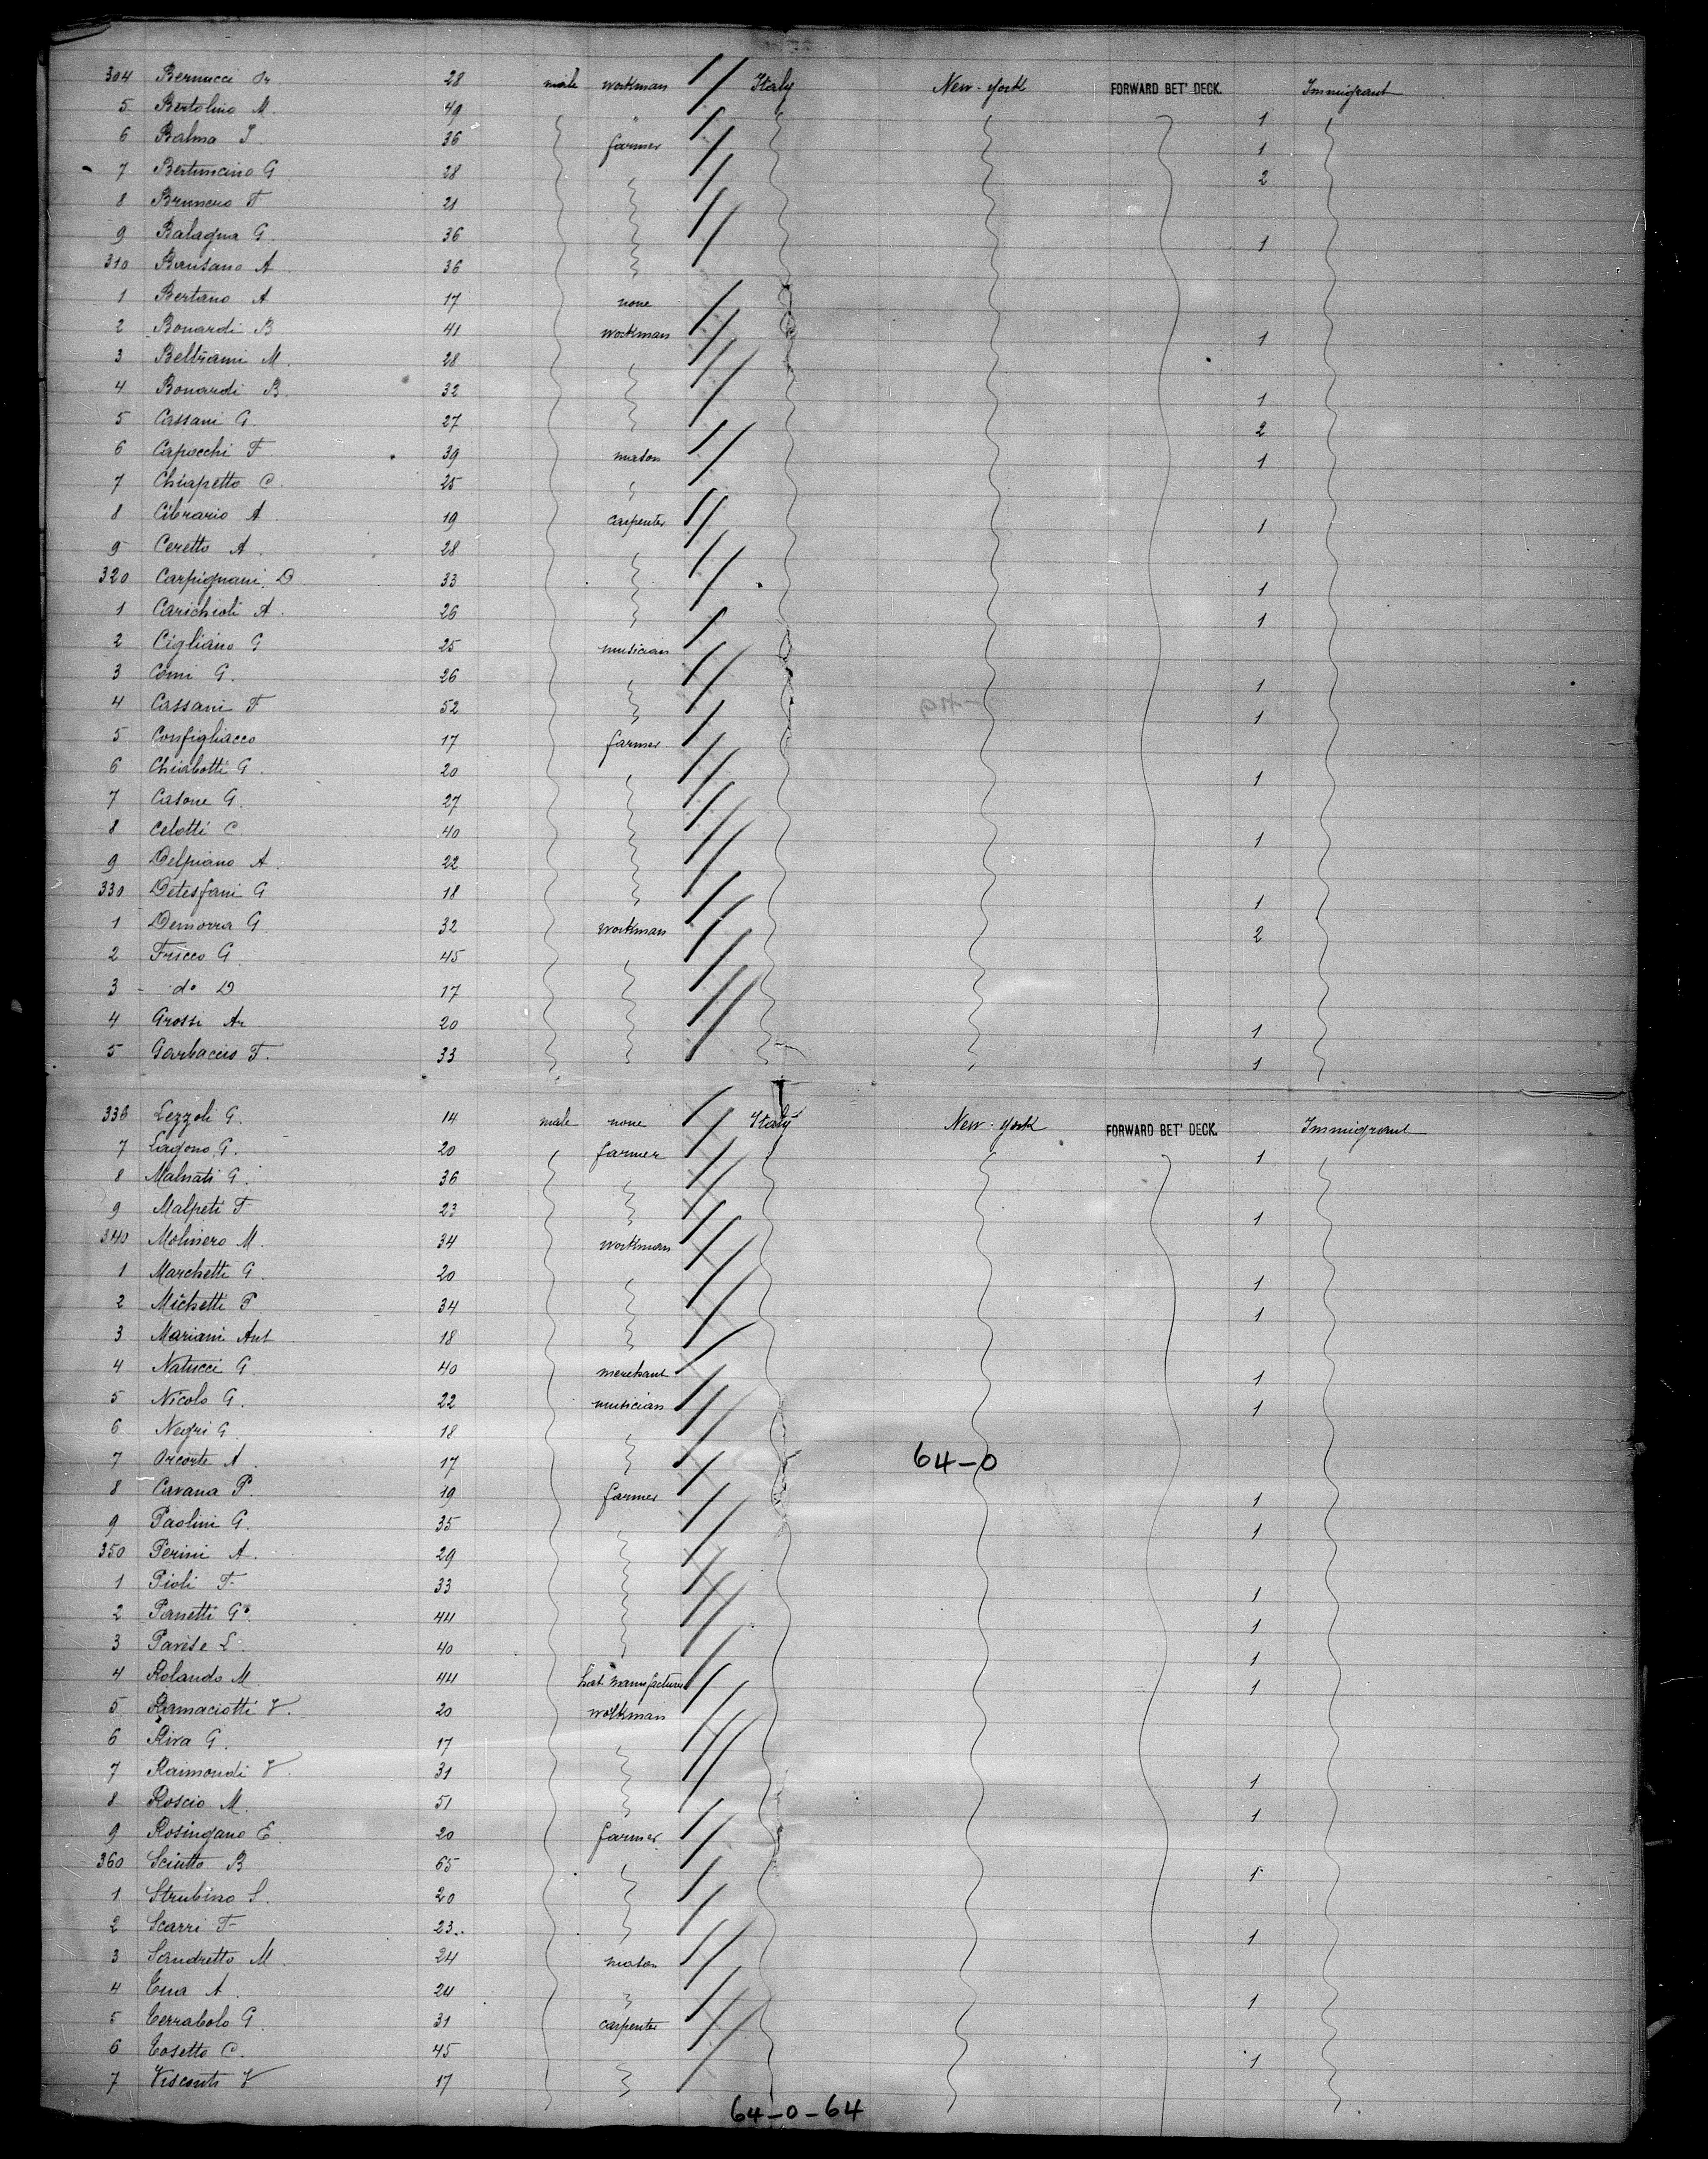 304 Bernucci Or 28 male workman // Italy New-York FORWARD BET' DECK. Immigrant
5 Bertolino M. 49 " 1
6 Balma J. 36 farmer 1
7 Bertuncino G 28 2
8 Brunero F 21
9 Balagna G. 36 1
310 Bansano A 36
1 Bertano A 17 none
2 Bonardi B. 41 workman 1
3 Beltrami M. 28
4 Bonardi B. 32 1
5 Cassani G. 27 2
6 Capacchi F 39 mason 1
7 Chiapetto C. 25
8 Cibrario A 19 carpenter 1
9 Ceretto A. 28
320 Carpignani D. 33 1
1 Carichioli A. 26 1
2 Cigliano G 25 musician
3 Comi G. 26 1
4 Cassani F 52 1
5 Configliacco 17 farmer
6 Chiabotti G. 20 1
7 Casone G. 27
8 Celotti C. 40 1
9 Delpiano A. 22
330 Detesfani G 18 1
1 Demorra G. 32 workman 2
2 Fricco G. 45
3 - do D 17
4 Grossi An 20 1
5 Garbaccio F. 33 1
336 Lezzoli G. 14 male none Italy New-York FORWARD BET' DECK. Immigrant
7 Lagono G. 20 farmer 1
8 Malnati G. 36
9 Malpeti F 23 1
340 Molinero M. 34 workman
1 Marchetti G. 20 1
2 Michetti P. 34 1
3 Mariani Ant 18
4 Natucci G 40 merchant 1
5 Nicolo G. 22 musician 1
6 Negri G. 18
7 Orcorte A. 17 64-0
8 Cavana P. 19 farmer 1
9 Paolini G. 35 1
350 Perini A. 29
1 Pioli F. 33 1
2 Panetti G. 44 1
3 Parese L. 40 1
4 Rolando M. 44 hat manufacturer 1
5 Ramaciotti V. 20 workman
6 Riva G. 17
7 Raimondi V. 31 1
8 Roscio M. 51 1
9 Rosingano E. 20 farmer
360 Sciutto B 65 1
1 Strubino S. 20
2 Scarri F- 23 1
3 Sandretto M. 24 mason
4 Tua A. 24 1
5 Terrabolo G. 31 carpenter
6 Tosetto C. 45 1
7 Visconti V 17
64-0-64